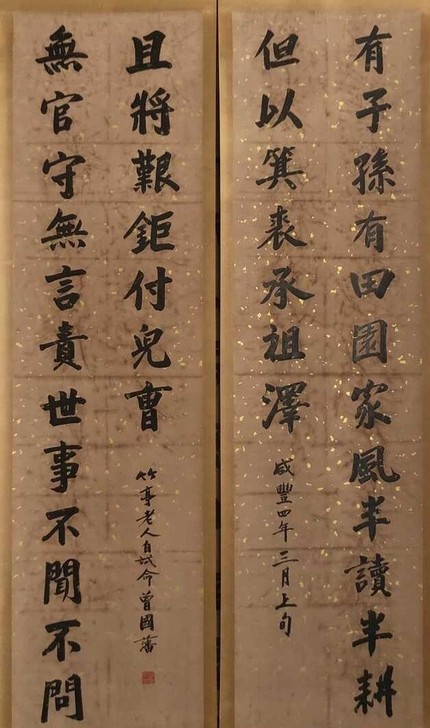 有子孫有田園家風半讀半耕
但以箕裘承祖澤
咸豐四年三月上旬
無官守無言責世事不聞不問
且將艱鉅付兒曹
竹亭老人自命曾國藩